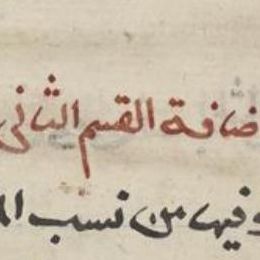 ضافة القسم الثانى
وفيها من نسب الم